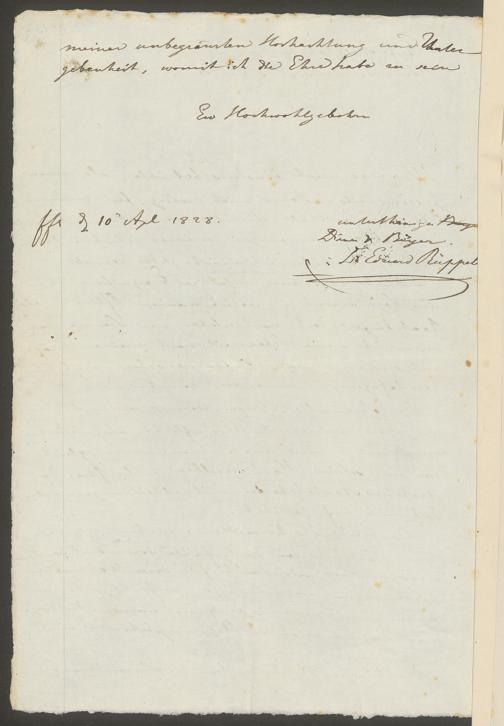 meiner unbegränzten Hochachtung und
gebenheit, womit ich die Ehre habe zu seyn
Ew Hochwohlgebohrn
ffr d 10 Apl 1828.
unterthäniger
Diener & Bürger.
Eduard Rüppel